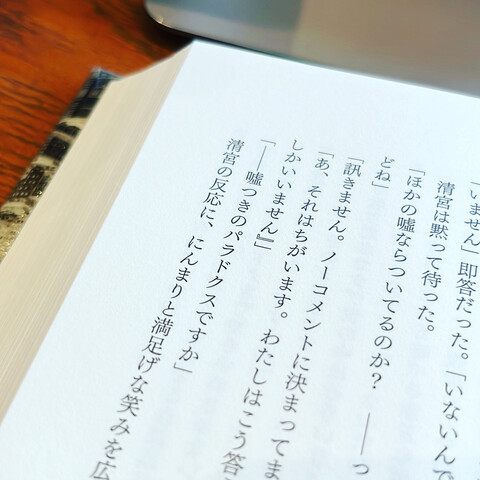 「いません」即答だった。「いないんで
清宮は黙って待った。
「ほかの嘘ならついてるのか？　――っ
どね」
「訊きません。ノーコメントに決まってま
「あ、それはちがいます。わたしはこう答
しかいいません』」
「――嘘つきのパラドクスですか」
清宮の反応に、にんまりと満足げな笑みを広